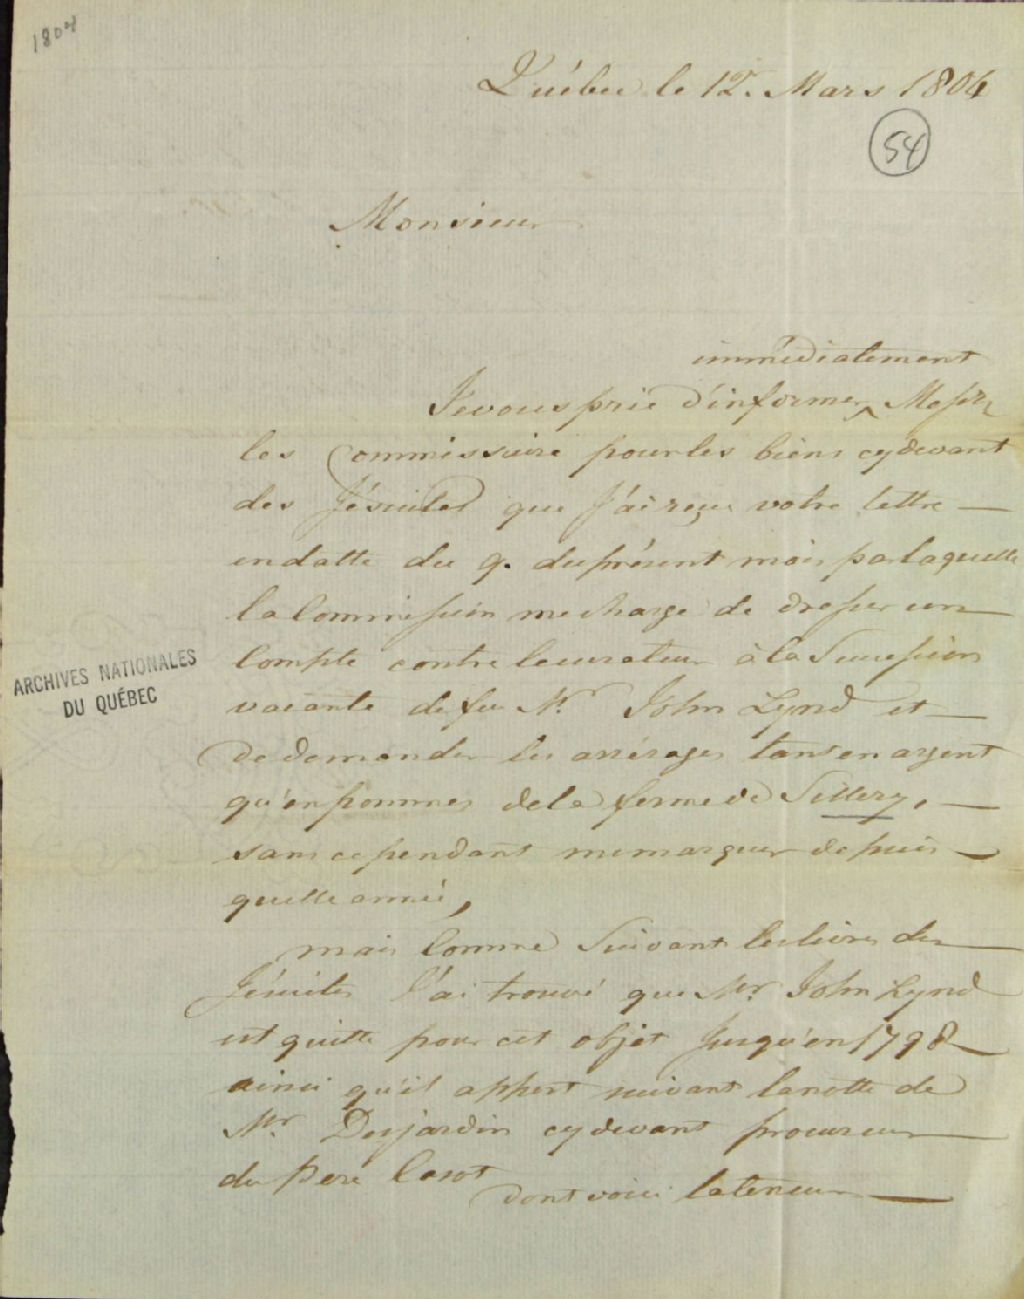 1804
Québec le 12. Mars 1804
54
Monsieur
immédiatement
Je vous prie d'informer ^ Messrs
les Commissaire pour les biens cy devant
des Jésuites que J'ai reçu votre lettre —
en datte du 9. du présent mois par laquelle
la Commission me charge de dresser un —
Compte contre le curateur à la Succession
vacante de feu Mr John Lynd et —
de demander les arrérages tant en argent
qu'en pommes de la ferme de Sillery, —
sans cependant me marquer depuis —
quelle année,
mais Comme Suivant les livres des —
Jésuites J'ai trouvé que Mr. John Lynd
est quitte pour cet objet Jusqu'en 1798 —
ainsi qu'il appert suivant la notte de
Mr. Desjardin cy devant procureur —
du Pere Casot
dont voici la teneur —
ARCHIVES NATIONALES
DU QUÉBEC